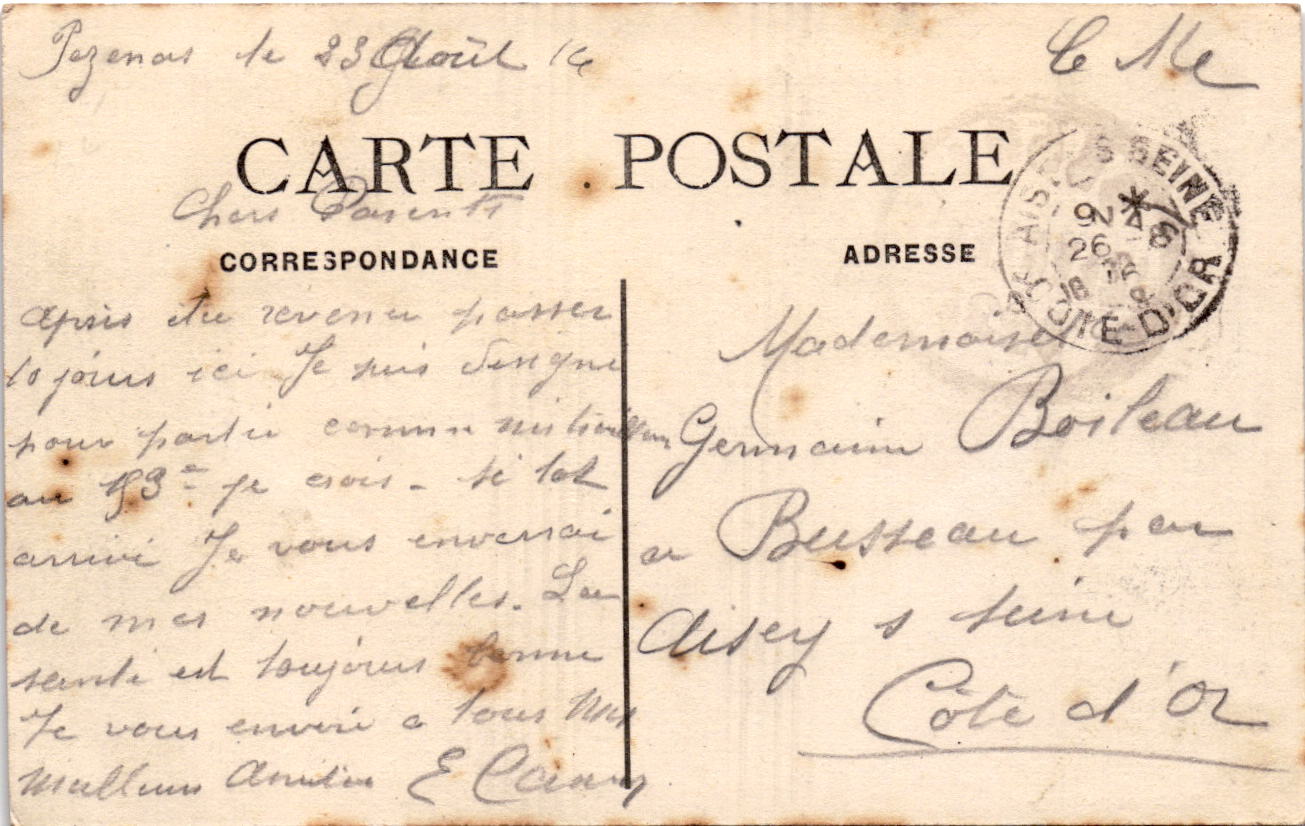 Pezenas le 23 Août 14
C Me
CARTE POSTALE
Chers Parents
CORRESPONDANCE
ADRESSE
après être revenu passer
10 jours ici Je suis désigné
pour partir comme mitrailleur
au 153e je crois. si tot
arrivé Je vous enverrai
de mes nouvelles. La
santé est toujours bonne
Je vous envoie a tous mes
meilleurs Amitiés E
Mademoiselle
Germaine Boileau
a Busseau par
Aisey s seine
Côte d'Or
AISEY S SEINE
COTE-D'OR
26